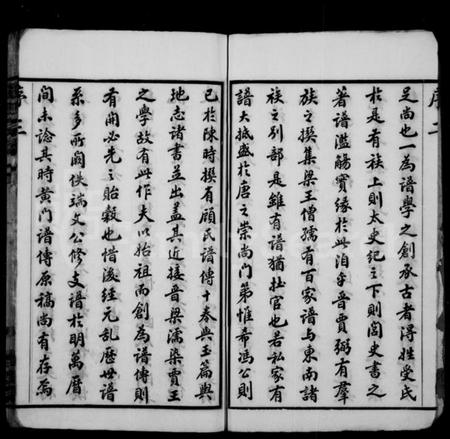 序二
足尚也一為譜學之創承古者得姓受氏
於是有族上則太史紀之下則閭史書之
著譜濫觴實緣於此洎乎晉賈弼有羣
族之撰集梁王僧孺有百家譜與東南諸
族之別部是雖有譜猶社官也若私家有
譜大抵盛於唐之崇尚門第惟希馮公則
已於陳時撰有顧氏譜傳十卷與玉篇與
地志諸書並出蓋其近接晉梁濡染賈王
之學故有此作夫以始祖而創為譜傳則
有開必先之貽穀也惜浚經元亂歷世譜
系多所闕佚端文公修支譜於明萬曆
間未諗其時黄門譜傳原稿尚有存焉
序三